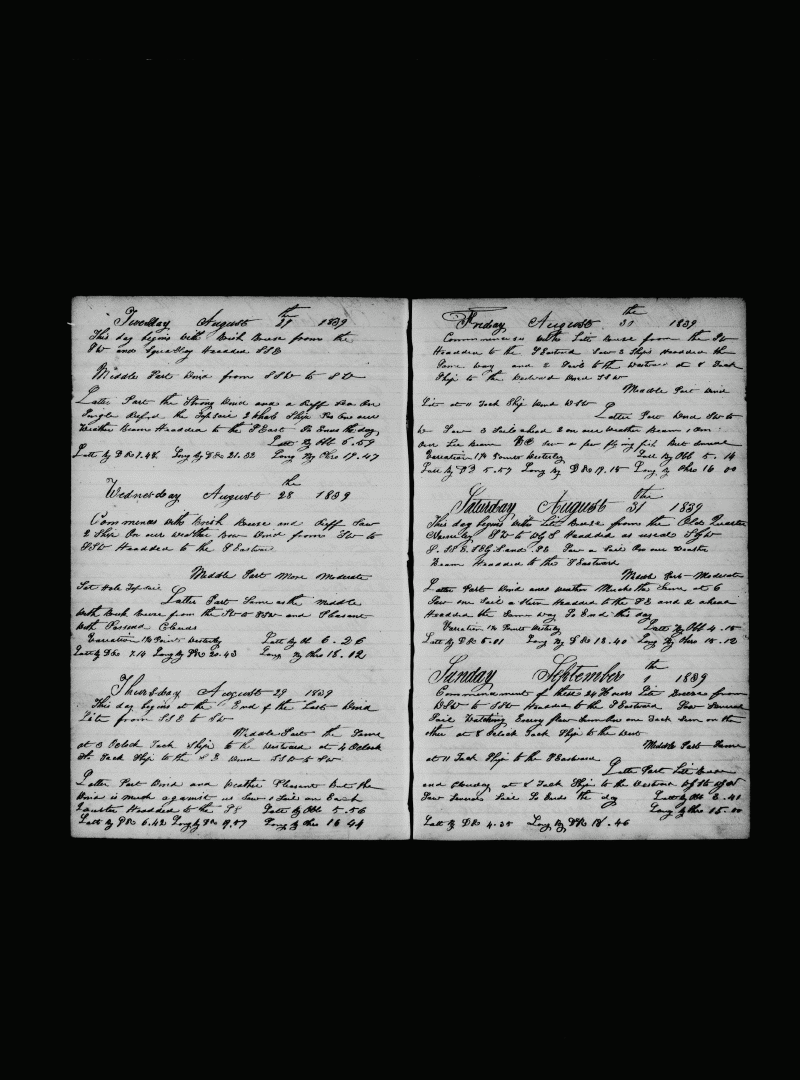 Tuesday August 27th 1839
This day begins with Brisk Breese from the
SW and Squalley Headded SSE
Middle Part Wind from SSW to SW
Latter Part the Strong Wind and a Ruff Sea On
Single Refed the Topsail 2 Ship Sea One our
Weather Beam Headded to the SEast So Ends the day
Latt By Obb 6.59
Latt By DR 7.48 Long By DR 21.32 Long By Chro 19.47
Wednesday August 28th 1839
Commences With Brisk Breese and Ruff Saw
2 Ship On our weather Bow Wind from SW to
SSW Headded to the SEastw
Middle Part More Moderate
Set Hole Topsail
Latter Part Same as the Middle
With Brisk Breese from the SW to SSW and Pleasant
With Passing Clouds
Variation 1¾ Point Westerly Latt By Ob 6.26
Latt By DR 7.14 Long By DR 20.43 Long By Chro 18.12
Thursday August 29 1839
This day begins as the End of the Last Wind
Lite from SSE to SW
Middle Part the Same
at 3 Oclock Tack Ship to the Westward at 4 Oclock
Tack Ship to the S E Wind SSW to SW
Latter Part Wind and Weather Pleasant But the
Wind is much against us Saw 1 Sail on Each
Quarter Headded to the SE Latt By Obb 5.56
Latt By DR 6.42 Long By DR 19.57 Long By Chro 16 44
Friday August 31th 1839
Commences on with Litt Breese from the SW
Headded to the SEastward Saw 3 Ships Headded the
Same way and 2 Sails to the Westward at 8 Tack
Ship to the Westward Wind SSW
Middle Part Wind
Lite at 11 Tack Ship Wind WSW
Latter Part Wind SW to
W Saw 3 Sails ahead 2 on our Weather Beam 1 on
Our Lee Beam saw a few flying fish But
Variation 1¾ Points Westerley Latt By Obb 5.14
Latt By DR 5.57 Long By DR 19.15 Long By Chro 16 00
Saturday August 31the 1839
This day begins With Litt Breese from the Old Quarter
Vareing SW to Headded as usual
Saw a Sail On our Weather
Beam Headded to the SEastward
Middle Part Moderate
Latter Part Wind and Weather Much the Same at 6
Saw one Sail a Stern Headded to the SE and 2 ahead
Headded the Same way So Ends this day
Variation 1¾ Points Westerley Latt By Obb 4.15
Latt By DR 5.01 Long By DR 18.40 Long By Chro 15.12
Sunday September 1th 1839
Commencement of these 24 Hours Lite Breese from
WSW to SSW Headded to the SEastward Saw Several
Sail Watching Every flew from One Tack Seen on the
other at 8 Oclock Tack Ship to the West
Middle Part Same
at 11 Tack Ship to the SEastward
Latter Part Litt Breese
and Cloudey at 8 Tack Ship to the Westward
Saw Several Sail So Ends the day Latt By Obb 3.41
Long By Chro 15.00
Latt By DR 4.35 Long By DR 18.46